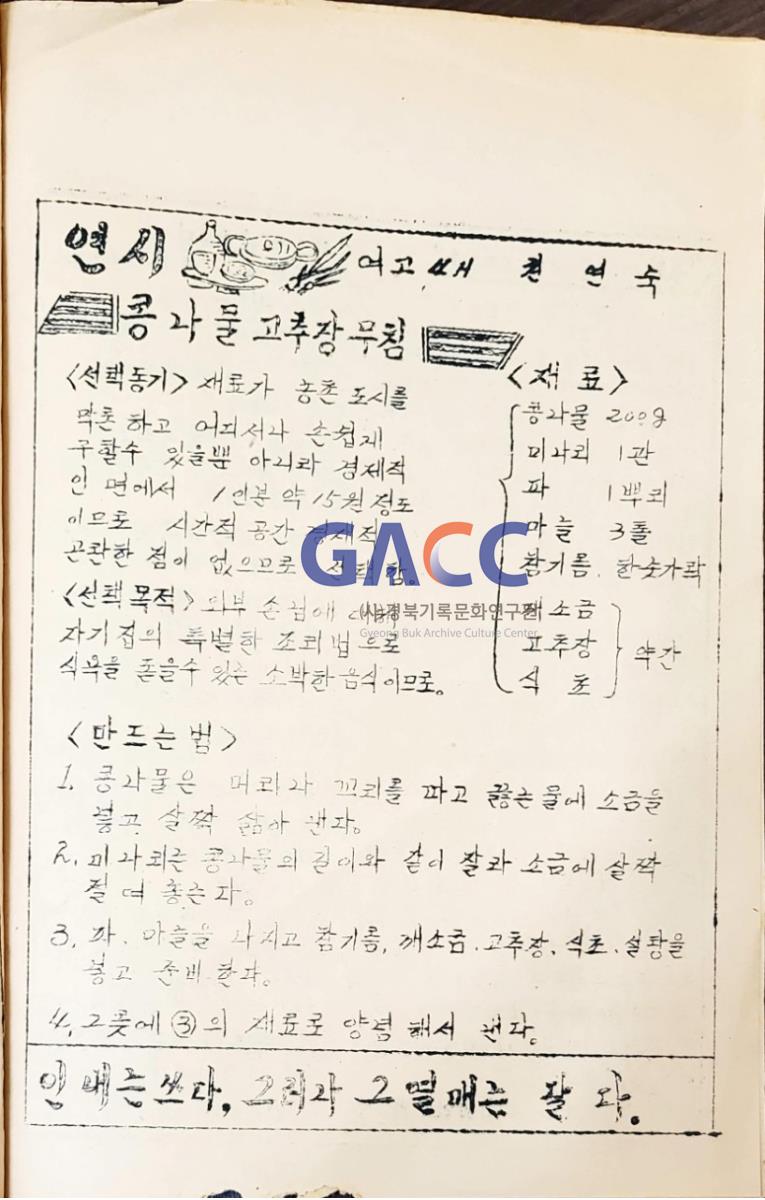 연시
여고 4H 권 연 숙
콩나물 고추장무침
<선택동기> 재료가 농촌 도시를
막론하고 어디서나 손쉽게
구할수 있을뿐 아니라 경제적
인 면에서 1인분 약 15원정도
이므로 시간적 공간 경제적
곤란한 점이 없으므로 선택함.
<선택목적> 외부 손님에
자기집의 특별한 조리법으로
식욕을 돋을수 있는 소박한 음식이므로.
<재료>
콩나물 200g
미나리 1관
파 1뿌리
마늘 3톨
참기름. 한숫가락
깨소금
고추장
식초
약간
<만드는법>
1. 콩나물은 머리와 꼬리를 따고 끓는물에 소금을
넣고 살짝 삶아 낸다.
2. 미나리는 콩나물의 길이와 같이 잘라 소금에 살짝
절여 놓는다.
3. 파. 마늘을 다지고 참기름, 깨소금. 고추장. 식초. 설탕을
넣고 준비한다.
4. 그릇에 ③의 재료로 양념해서 낸다.
인내는쓰다, 그러나 그 열매는 달다.
GACC
(사)경북기록문화연구원
Gyeong Buk Archive Culture Center